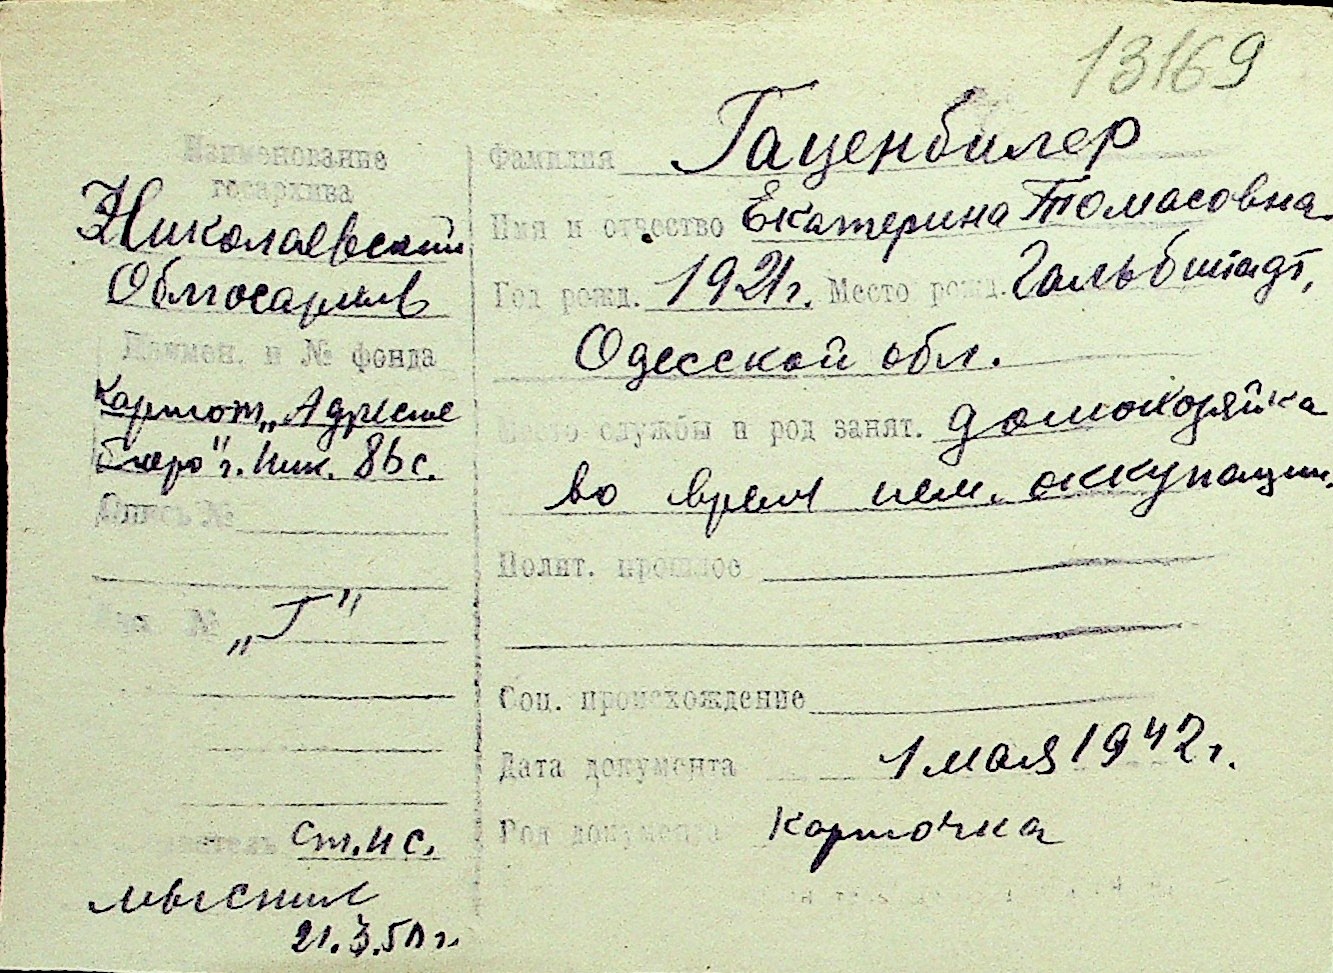 13169
Наименование
госархива
Николаевский
Облгосархив
Наимен. и № фонда
Картот. „Адресное
бюро" г. Ник. 86 с.
Опись №
№ „Г"
ст. н с.
21.3.50 г.
Фамилия Гаценбилер
Имя и отчество Екатерина Томасовна
Год рожд. 1921 г. Место рожд. Гальбштадт,
Одесской обл.
Место службы и род занят. домохозяйка
во время нем. оккупации.
Полит. прошлое
Соц. происхождение
Дата документа 1 мая 1942 г.
Род документа карточка